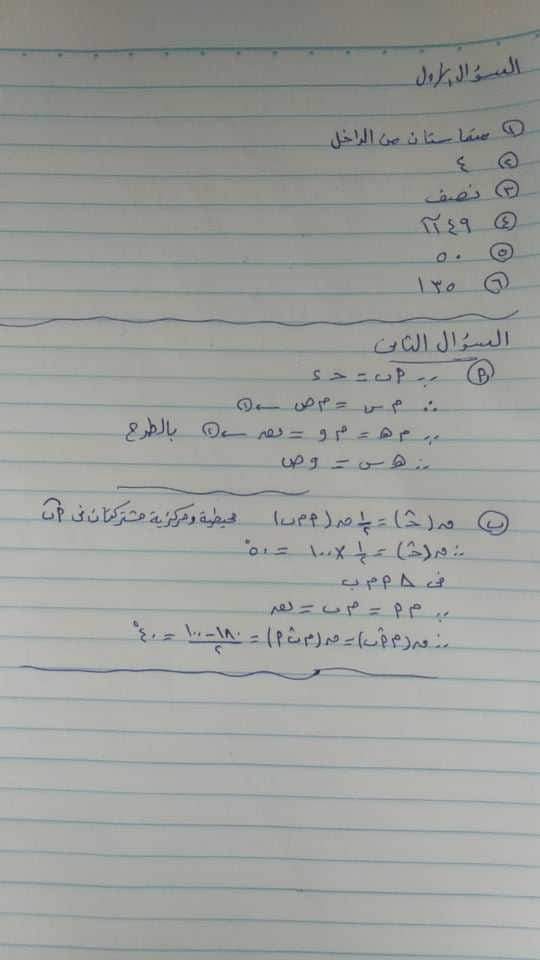 السؤال الأول
① متماستان من الداخل
② ٤
③ نصف
④ ٤٩ ط
⑤ ٥٠
⑥ ١٣٥
السؤال الثاني
Ⓟ ∵ م ب = حـ د
∴ م س = م ص ← ①
∵ م هـ = م و = نصہ ← ② بالطرح
∴ هـ س = و ص
ⓑ ق (حـ̂) = ١/٢ ق (م م̂ ب) محيطية ومركزية مشتركتان في م ب
∴ ق (حـ̂) = ١/٢ × ١٠٠ = ٥٠°
في Δ م م ب
∵ م م = م ب = نصہ
∴ ق (م م̂ ب) = ق (م ب̂ م) = (١٨٠ - ١٠٠)/٢ = ٤٠°